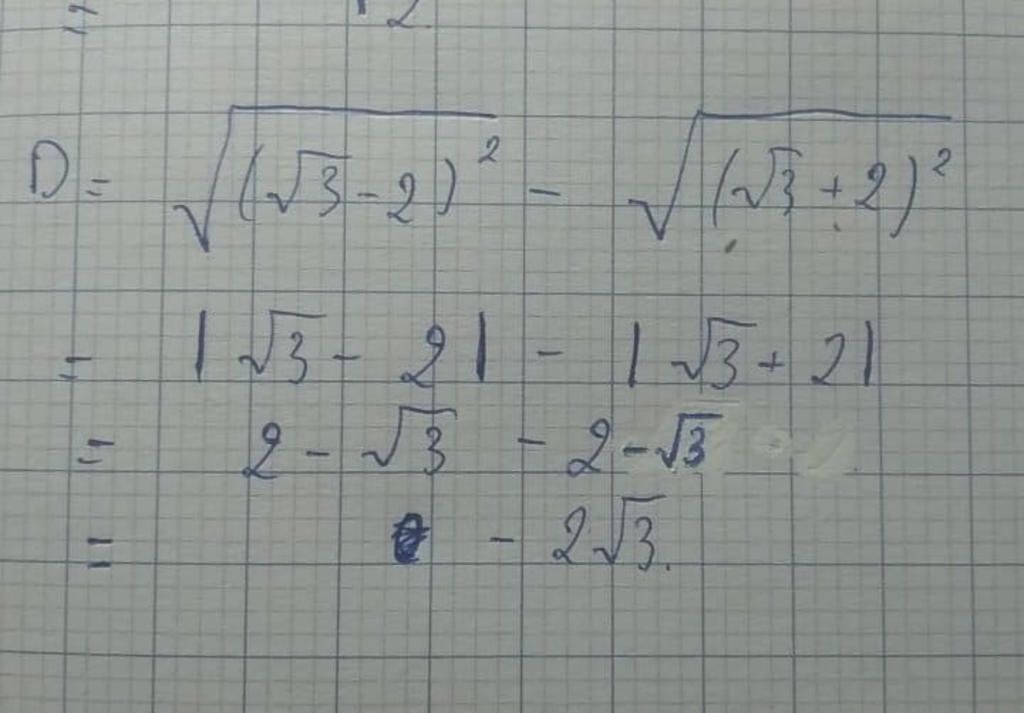 = √2.
D = √(√3 - 2)² - √(√3 + 2)²
= |√3 - 2| - |√3 + 2|
= 2 - √3 - 2 - √3
= - 2√3.